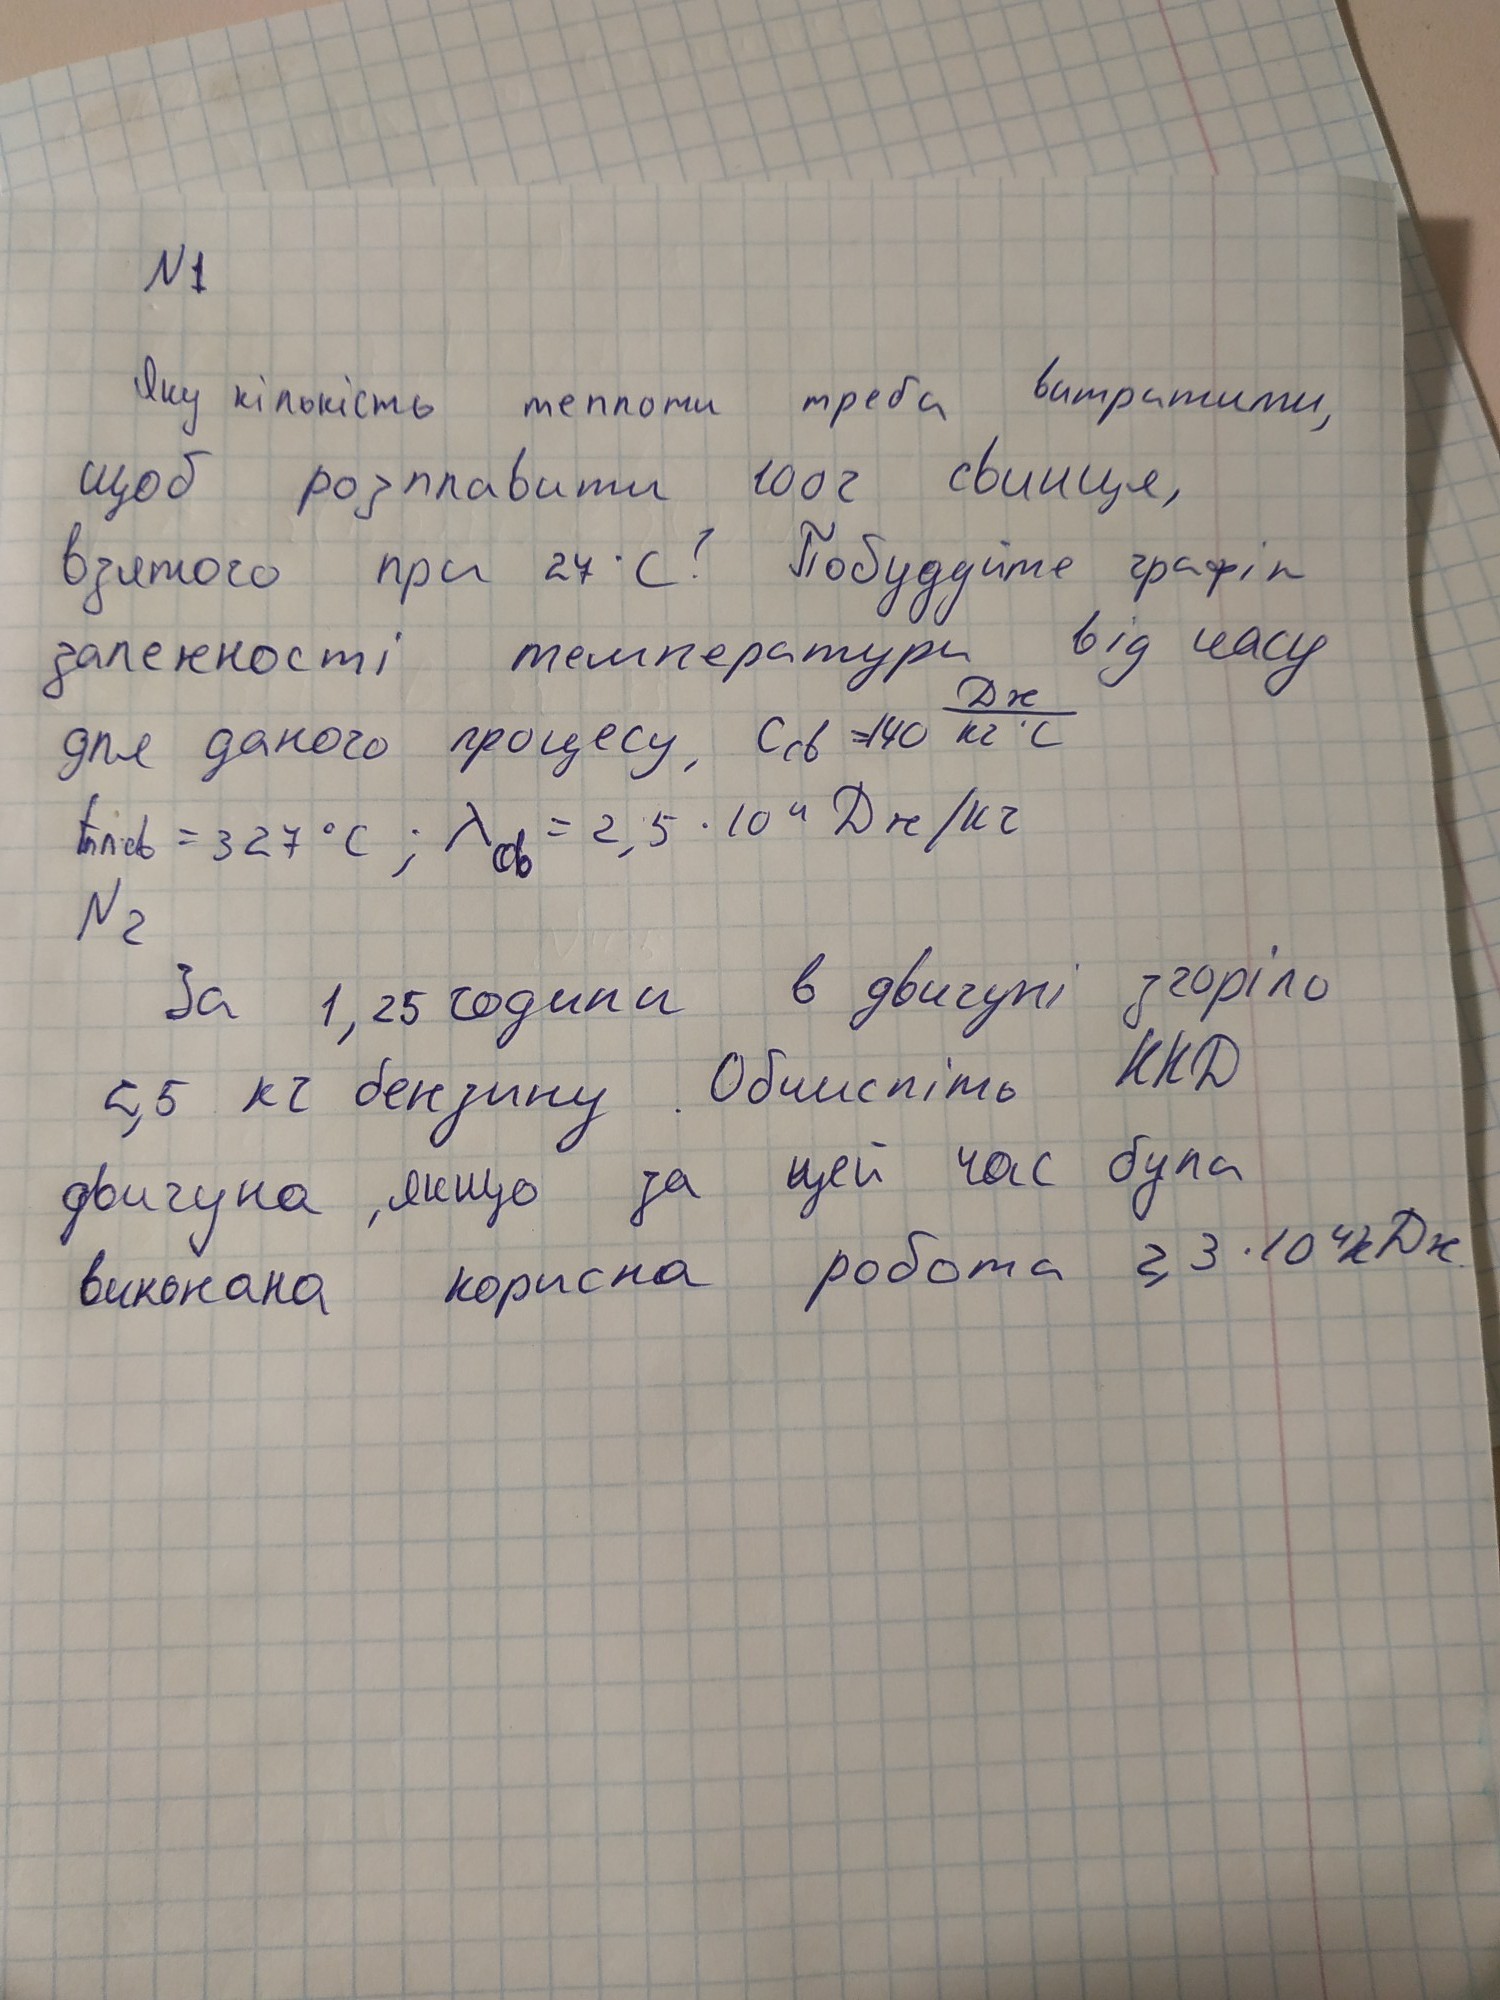 N1
Яку кількість теплоти треба витратити,
щоб розплавити 100г свинця,
взятого при 27°С? Побудуйте графік
залежності температури від часу
для даного процесу, Ссв =140 Дж/кг·°С
tплсв = 327°С ; λсв = 2,5 · 10⁴ Дж/кг
N2
За 1,25 години в двигуні згоріло
2,5 кг бензину. Обчисліть ККД
двигуна, якщо за цей час була
виконана корисна робота 2,3 · 10⁴ кДж